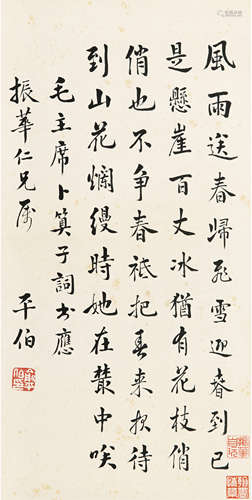 風雨送春歸飛雪迎春到已
是懸崖百丈冰猶有花枝俏
俏也不爭春祗把春來報待
到山花爛縵時她在叢中咲
毛主席卜算子詞書應
振華仁兄屬 平伯